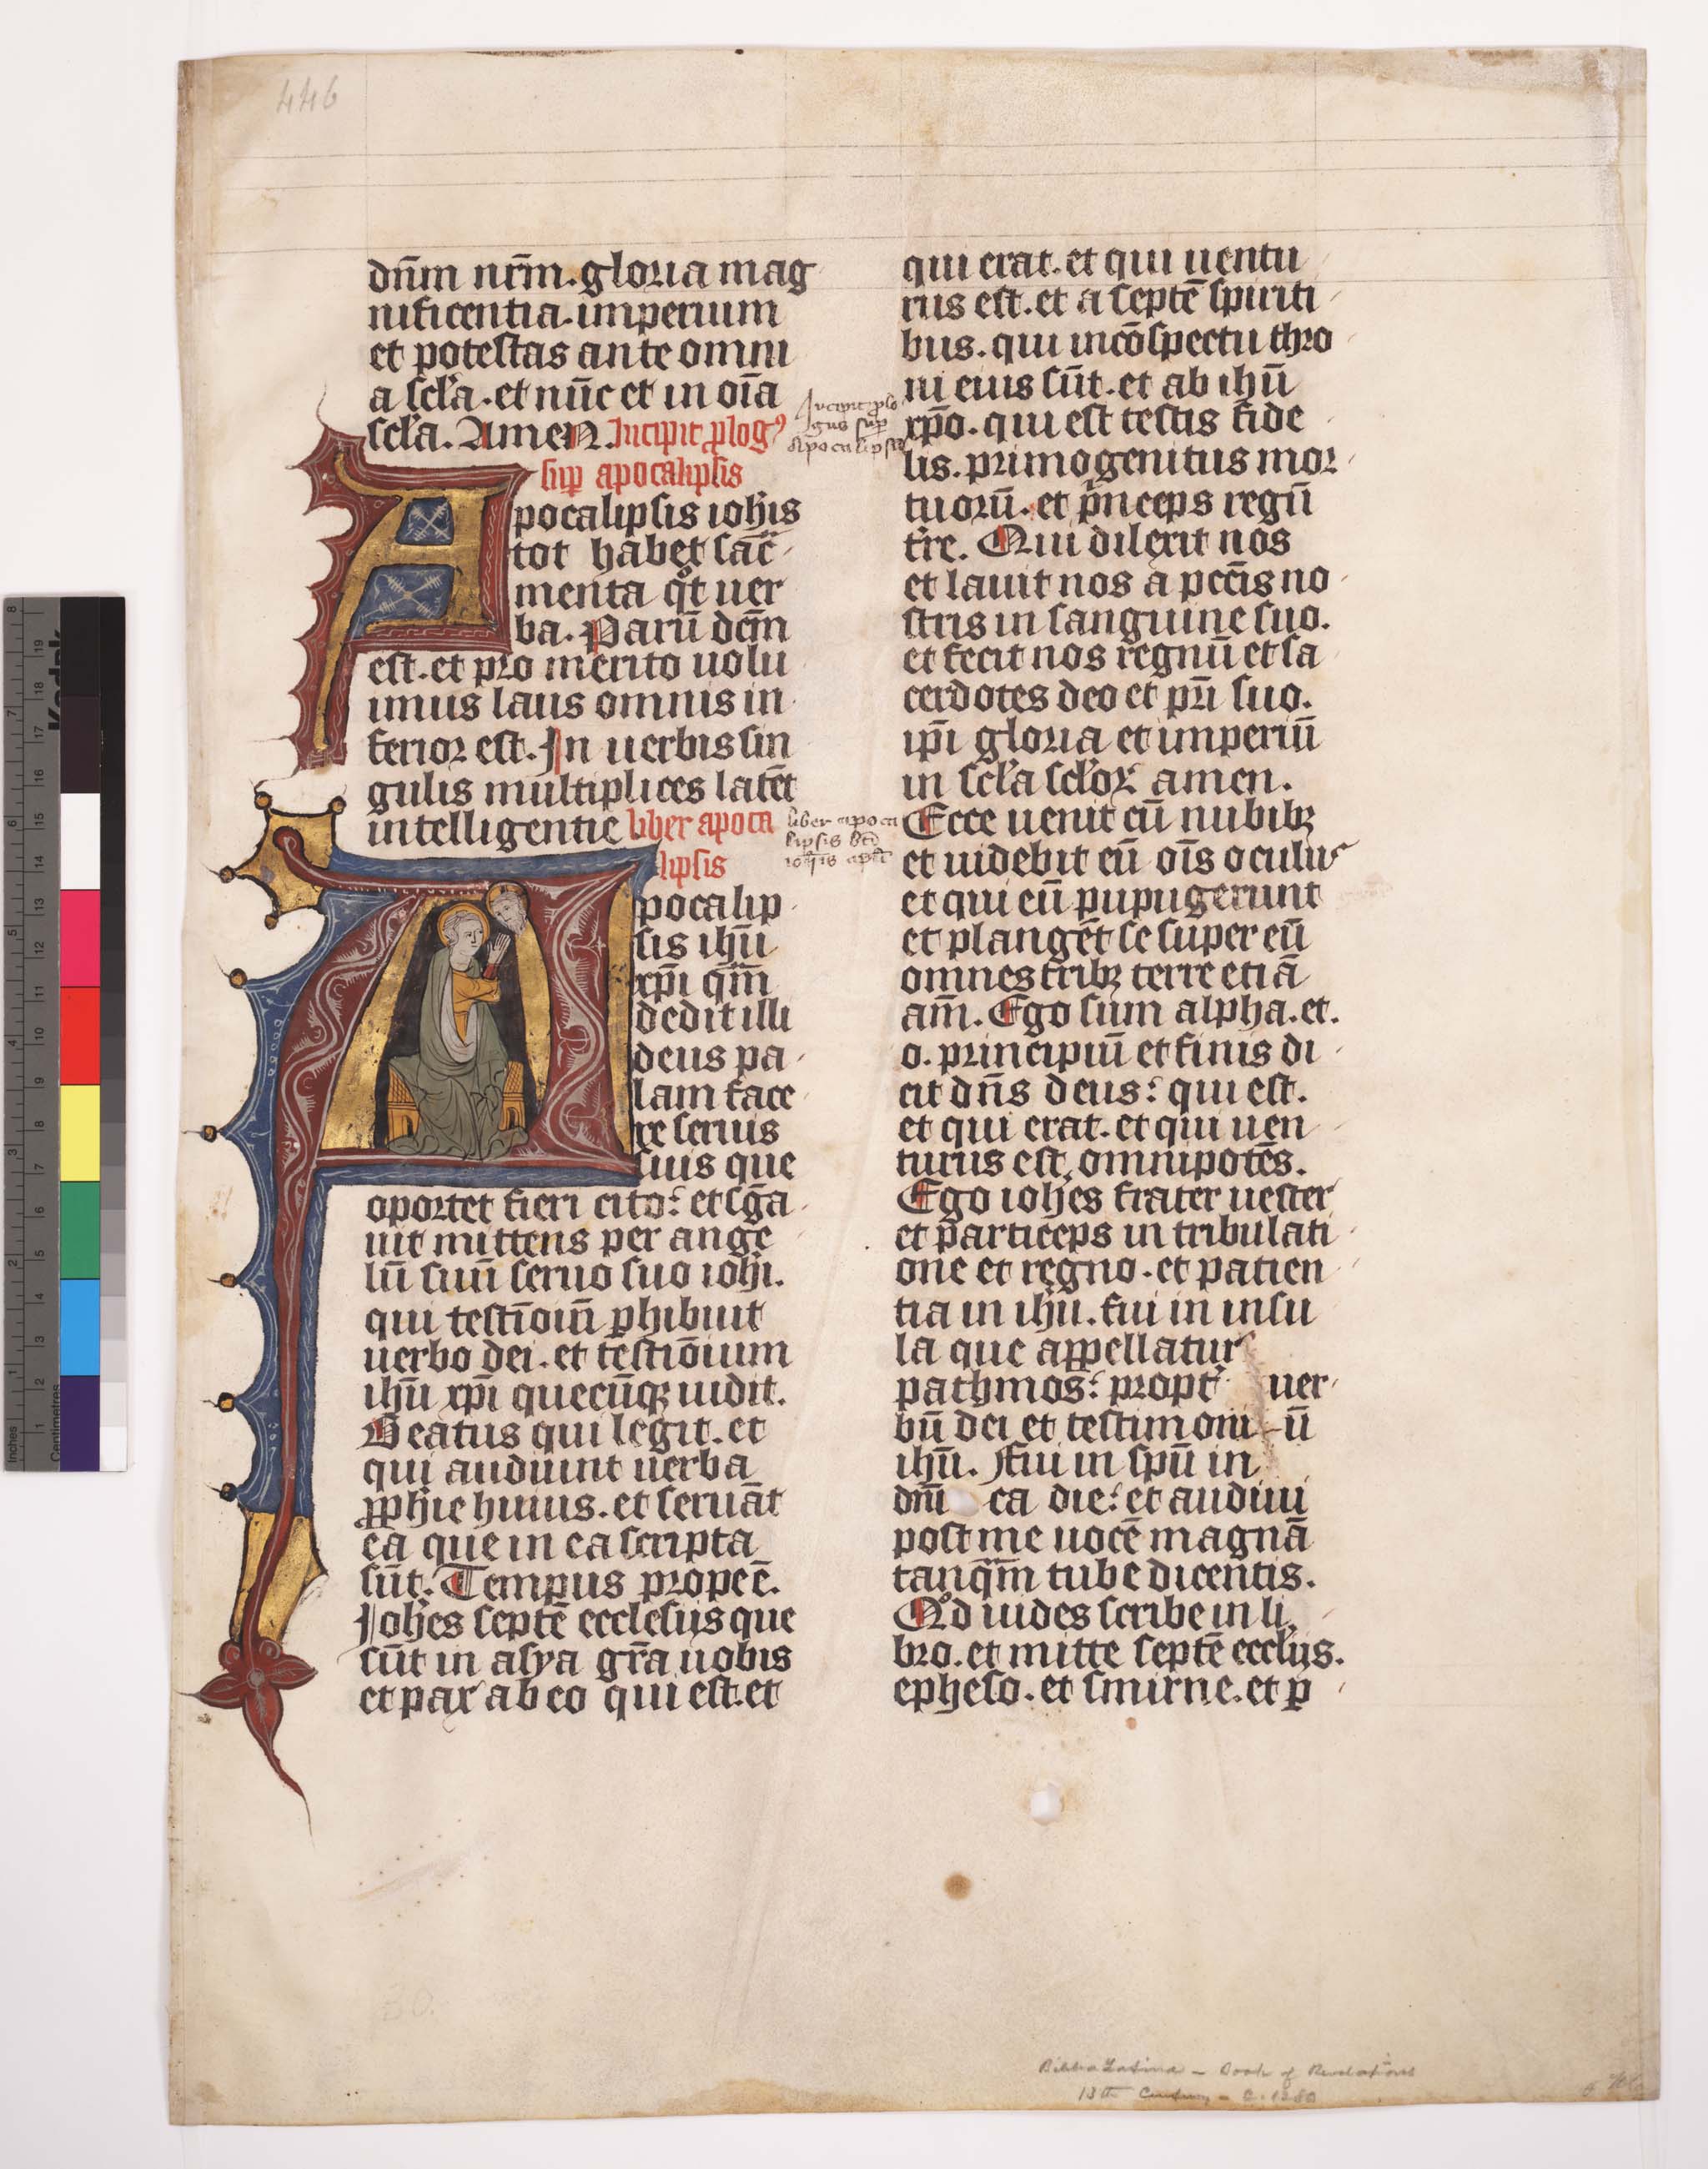 446
dn̄m nr̄m. gloria mag
nificentia. imperium
et potestas ante omni
a scl̄a. et nūc et in oīa
scl̄a. Amen. Incipit ꝓlogꝰ
suꝑ apocalipsis
Incipit ꝓlo
gus suꝑ
Apocalipsis
pocalipsis ioh̄is
tot habet sac̄
menta qͦt uer
ba. Parū dc̄m
est. et pro merito uolu
minus laus omnis in
ferior est. In uerbis sin
gulis multiplices latēt
intelligentie liber apoca
lipsis
liber apoca
lipsis btī
ioh̄is apl̄i
pocalip
sis ih̄u
xp̄i qm̄
dedit illi
deus pa
lam face
re seruis
suis que
oportet fieri cito: et sḡa
uit mittens per ange
lū suū seruo suo ioh̄i.
qui testīoīū ꝑhibuit
uerbo dei. et testīōium
ih̄u xp̄i quecūqꝫ uidit.
Beatus qui legit. et
qui audiunt uerba
ꝓph̄ie huius. et seruāt
ea que in ea scripta
sūt. Tempus prope ē.
Ioh̄es septē ecclesiis que
sūt in asya gr̄a uobis
et pax ab eo qui est. et
qui erat. et qui uentu
rus est. et a septē spiriti
bus. qui in cōspectu thro
ni eius sūt. et ab ih̄u
xp̄o. qui est testis fide
lis. primogenitus mor
tuorū. et pͥnceps regū
tr̄e. Qui dilexit nos
et lauit nos a pcc̄is no
stris in sanguine suo.
et fecit nos regnū et sa
cerdotes deo et pr̄i suo.
ip̄i gloria et imperiū
in scl̄a scl̄oꝝ amen.
Ecce uenit cū nubibꝫ
et uidebit eū oīs oculus
et qui eū pupugerunt
et plangēt se super eū
omnes tribꝫ terre etiā
am̄. Ego sum alpha. et.
o. principiū et finis di
cit dn̄s deus: qui est.
et qui erat. et qui uen
turus est, omnipotēs.
Ego ioh̄es frater uester
et particeps in tribulati
one et regno. et patien
tia in ih̄u. fui in insu
la que appellatur
pathmos: propt̄ uer
bū dei et testimoni-ū
ih̄u. Fui in spū in
dnī ca die: et audiui
post me uocē magnā
tanqm̄ tube dicentis.
Qͦd uides scribe in li
bro. et mitte septē eccl̄iis.
epheso. et smirne. et ꝑ
30.
Biblia Latina - Book of Revelations
13th Century - c. 1280